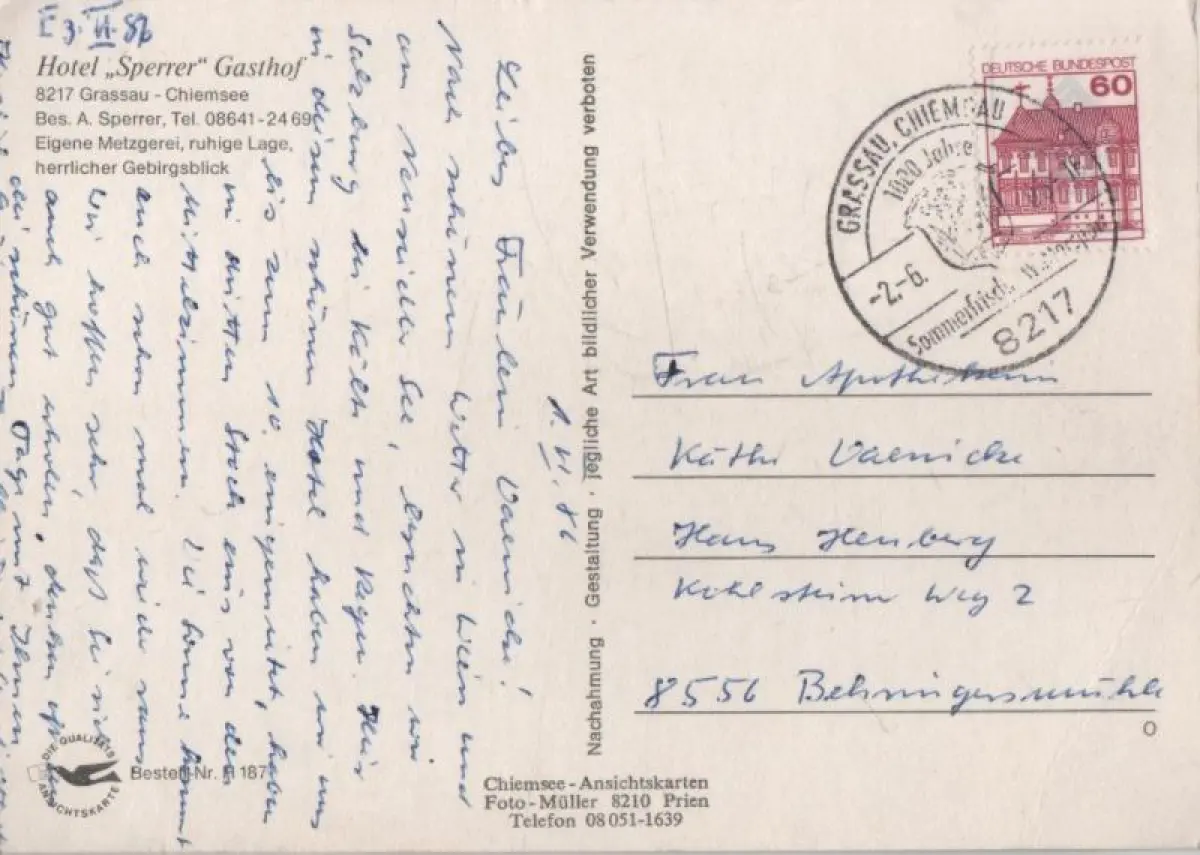 3. VI. 86
Hotel „Sperrer“ Gasthof
8217 Grassau - Chiemsee
Bes. A. Sperrer, Tel. 08641-2469
Eigene Metzgerei, ruhige Lage,
herrlicher Gebirgsblick
1. VI. 86
Liebes Fräulein Vaenicke!
Nach schönem Wetter in Wien und
am Neusiedler See, brachten wir
Salzburg die Kälte und Regen. Hier
in diesem schönen Hotel haben wir uns
bis zum 10. eingemietet, haben
im dritten Stock eins von den
Mittelzimmern. Die Sonne kommt
auch schon mal wieder raus.
Wir hoffen sehr, daß Sie sich
auch gut erholen, denken oft
der schönen Tage mit Ihnen
DIE QUALITÄTS
ANSICHTSKARTE
Bestell-Nr. 187
Nachahmung · Gestaltung · jegliche Art bildlicher Verwendung verboten
Chiemsee-Ansichtskarten
Foto-Müller 8210 Prien
Telefon 08051-1639
DEUTSCHE BUNDESPOST
60
GRASSAU, CHIEMGAU
Jahre
-2.-6.
Sommerfrische
8217
Frau Apothekerin
Käthe Vaenicke
Haus Heuberg
Kohlstein Weg 2
8556 Behringersmühle
O